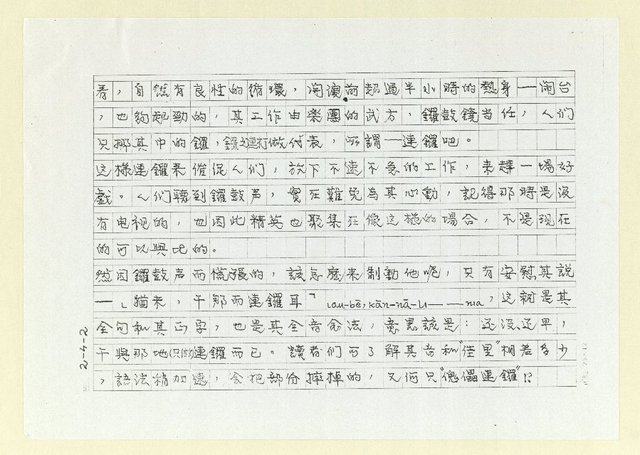 看，自然有良性的循環，閙演前起過半小時的熱身——閙台
，也夠起勁的，其工作由樂團的武方，鑼鼓鐃当任，人們
只挪其中的鑼，鑼運打做代表，所謂一連鑼吧。
這樣連鑼來催促人們，放下不速不急的工作，来趕一場好
戲。人們聽到鑼鼓声，實在難免為其心動，記得那時是沒
有电視的，也因此精英也聚集在像这樣的場合，不是現在
的可以與比的。
然因鑼鼓声而慌張的，該怎麼来制動他呢，只有安慰其説
一」猫未，干那而連鑼耳「 iau-bē, kān-nā-li——nia，这就是其
全句和其正字，也是其全音唸法，意思該是：还沒还早，
干與那地(只的)連鑼而已。讀者们可了解其音和"佳里"相差多少
，語法稍加速，会把部份摔掉的，又何只"傀儡連鑼"!?
2-4-2